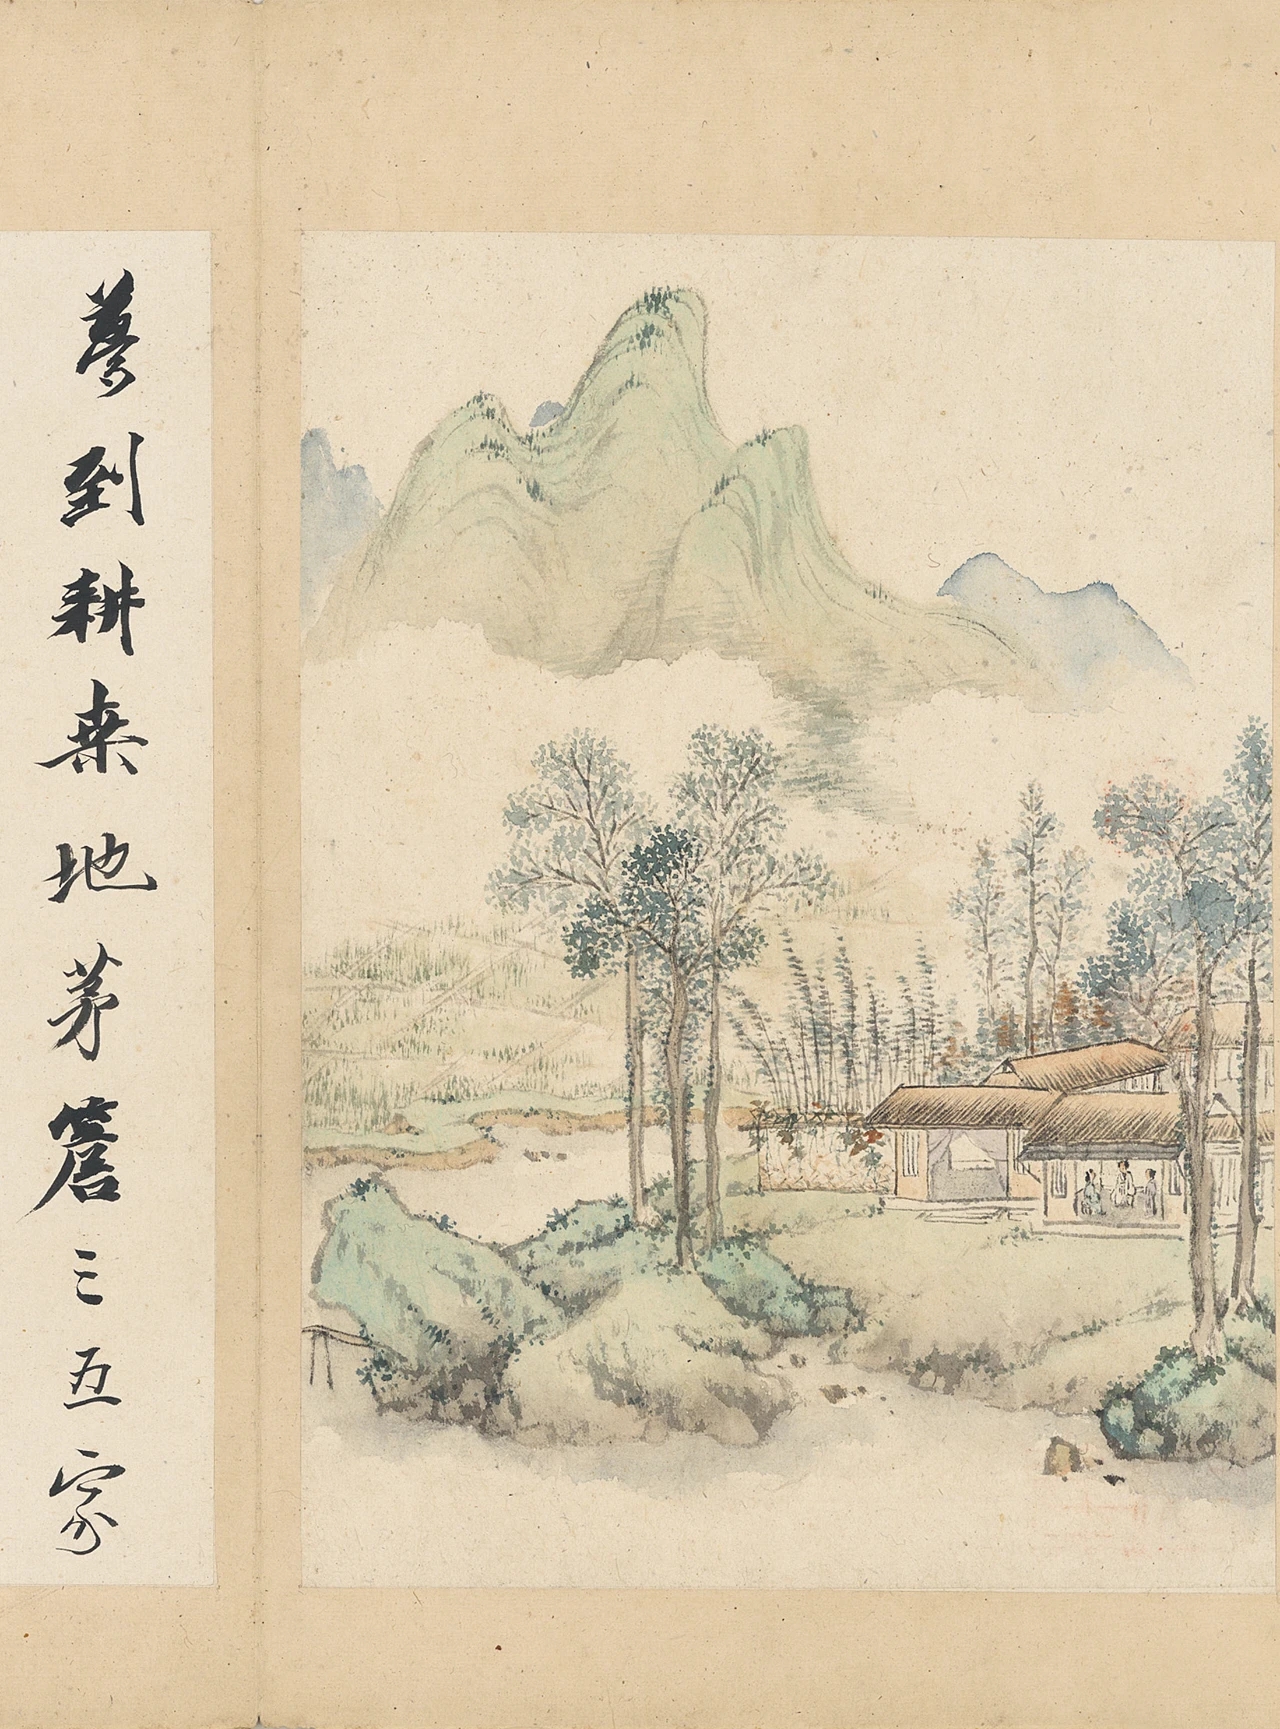 夢到耕桑地茅簷三五家